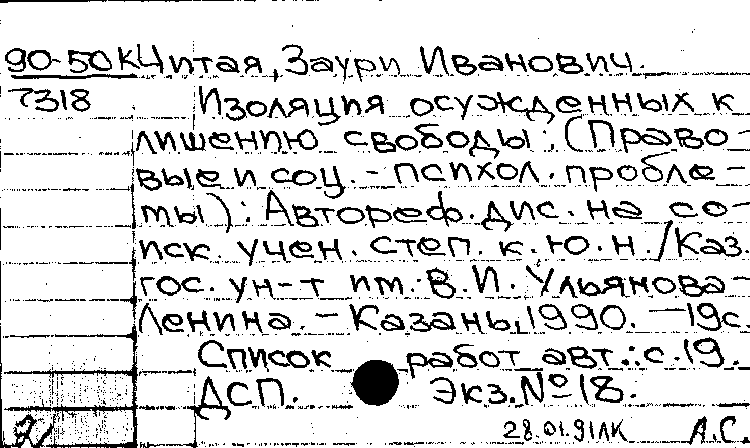 90-50К Читая, Заури Иванович.
7318 Изоляция осужденных к
лишению свободы: (Право-
вые и соц.-психол. пробле-
мы): Автореф. дис. на со-
иск. учен. степ. к.ю.н./Каз.
гос. ун-т им. В.И. Ульянова-
Ленина. - Казань, 1990. - 19с.
Список работ авт.: с. 19.
ДСП. Экз. № 18.
2 28.01.91ЛК А.С.